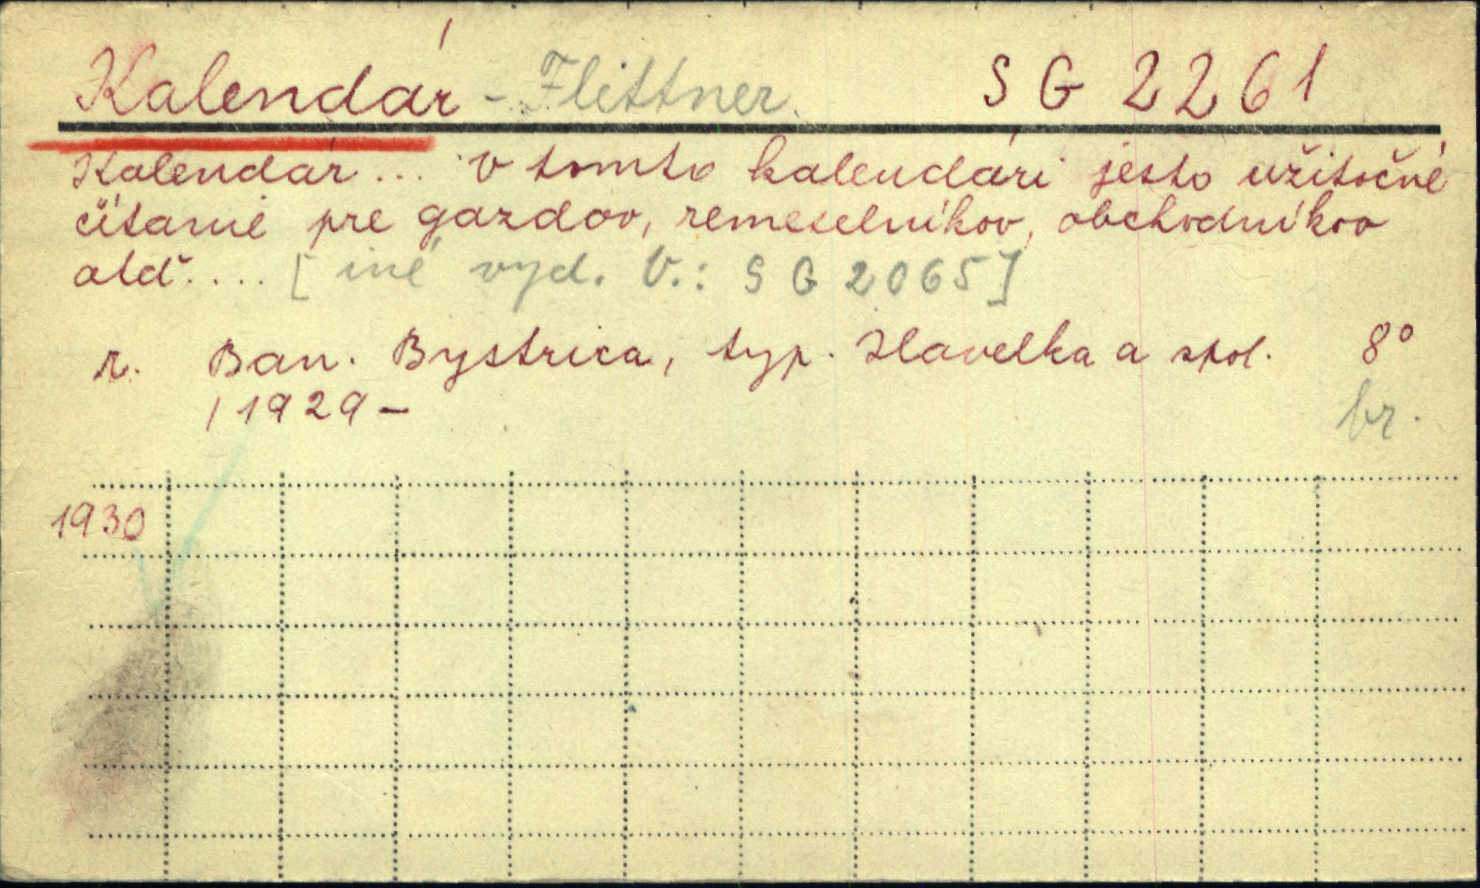 Kalendár - Flittner. SG 2261
Kalendár... V tomto kalendári jesto užitočné
čítanie pre gazdov, remeselníkov, obchodníkov
atď.... [iné vyd. V.: SG 2065]
r. Ban. Bystrica, typ. Havelka a spol. 8°
/1929- br.
1930